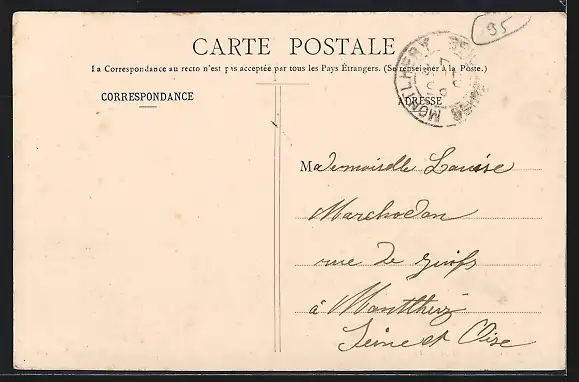 95
CARTE POSTALE
La Correspondance au recto n'est pas acceptée par tous les Pays Étrangers. (Se renseigner à la Poste.)
CORRESPONDANCE
ADRESSE
MONTLHERY
Mademoiselle Louise
Marchodan
rue de
à Montlhéry
Seine et Oise